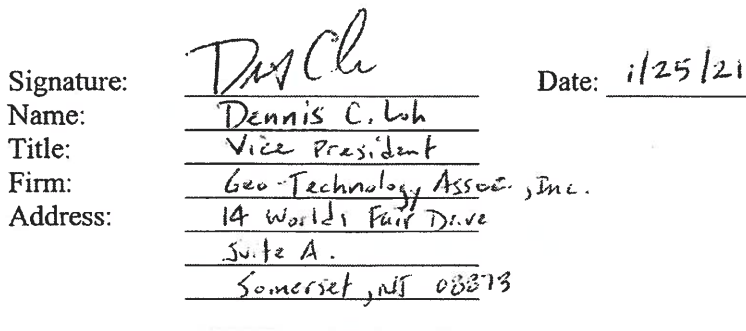 Signature: Date: 1/25/21
Name: Dennis C. Loh
Title: Vice President
Firm: Geo-Technology Assoc., Inc.
Address: 14 Worlds Fair Drive
Suite A.
Somerset, NJ 08873